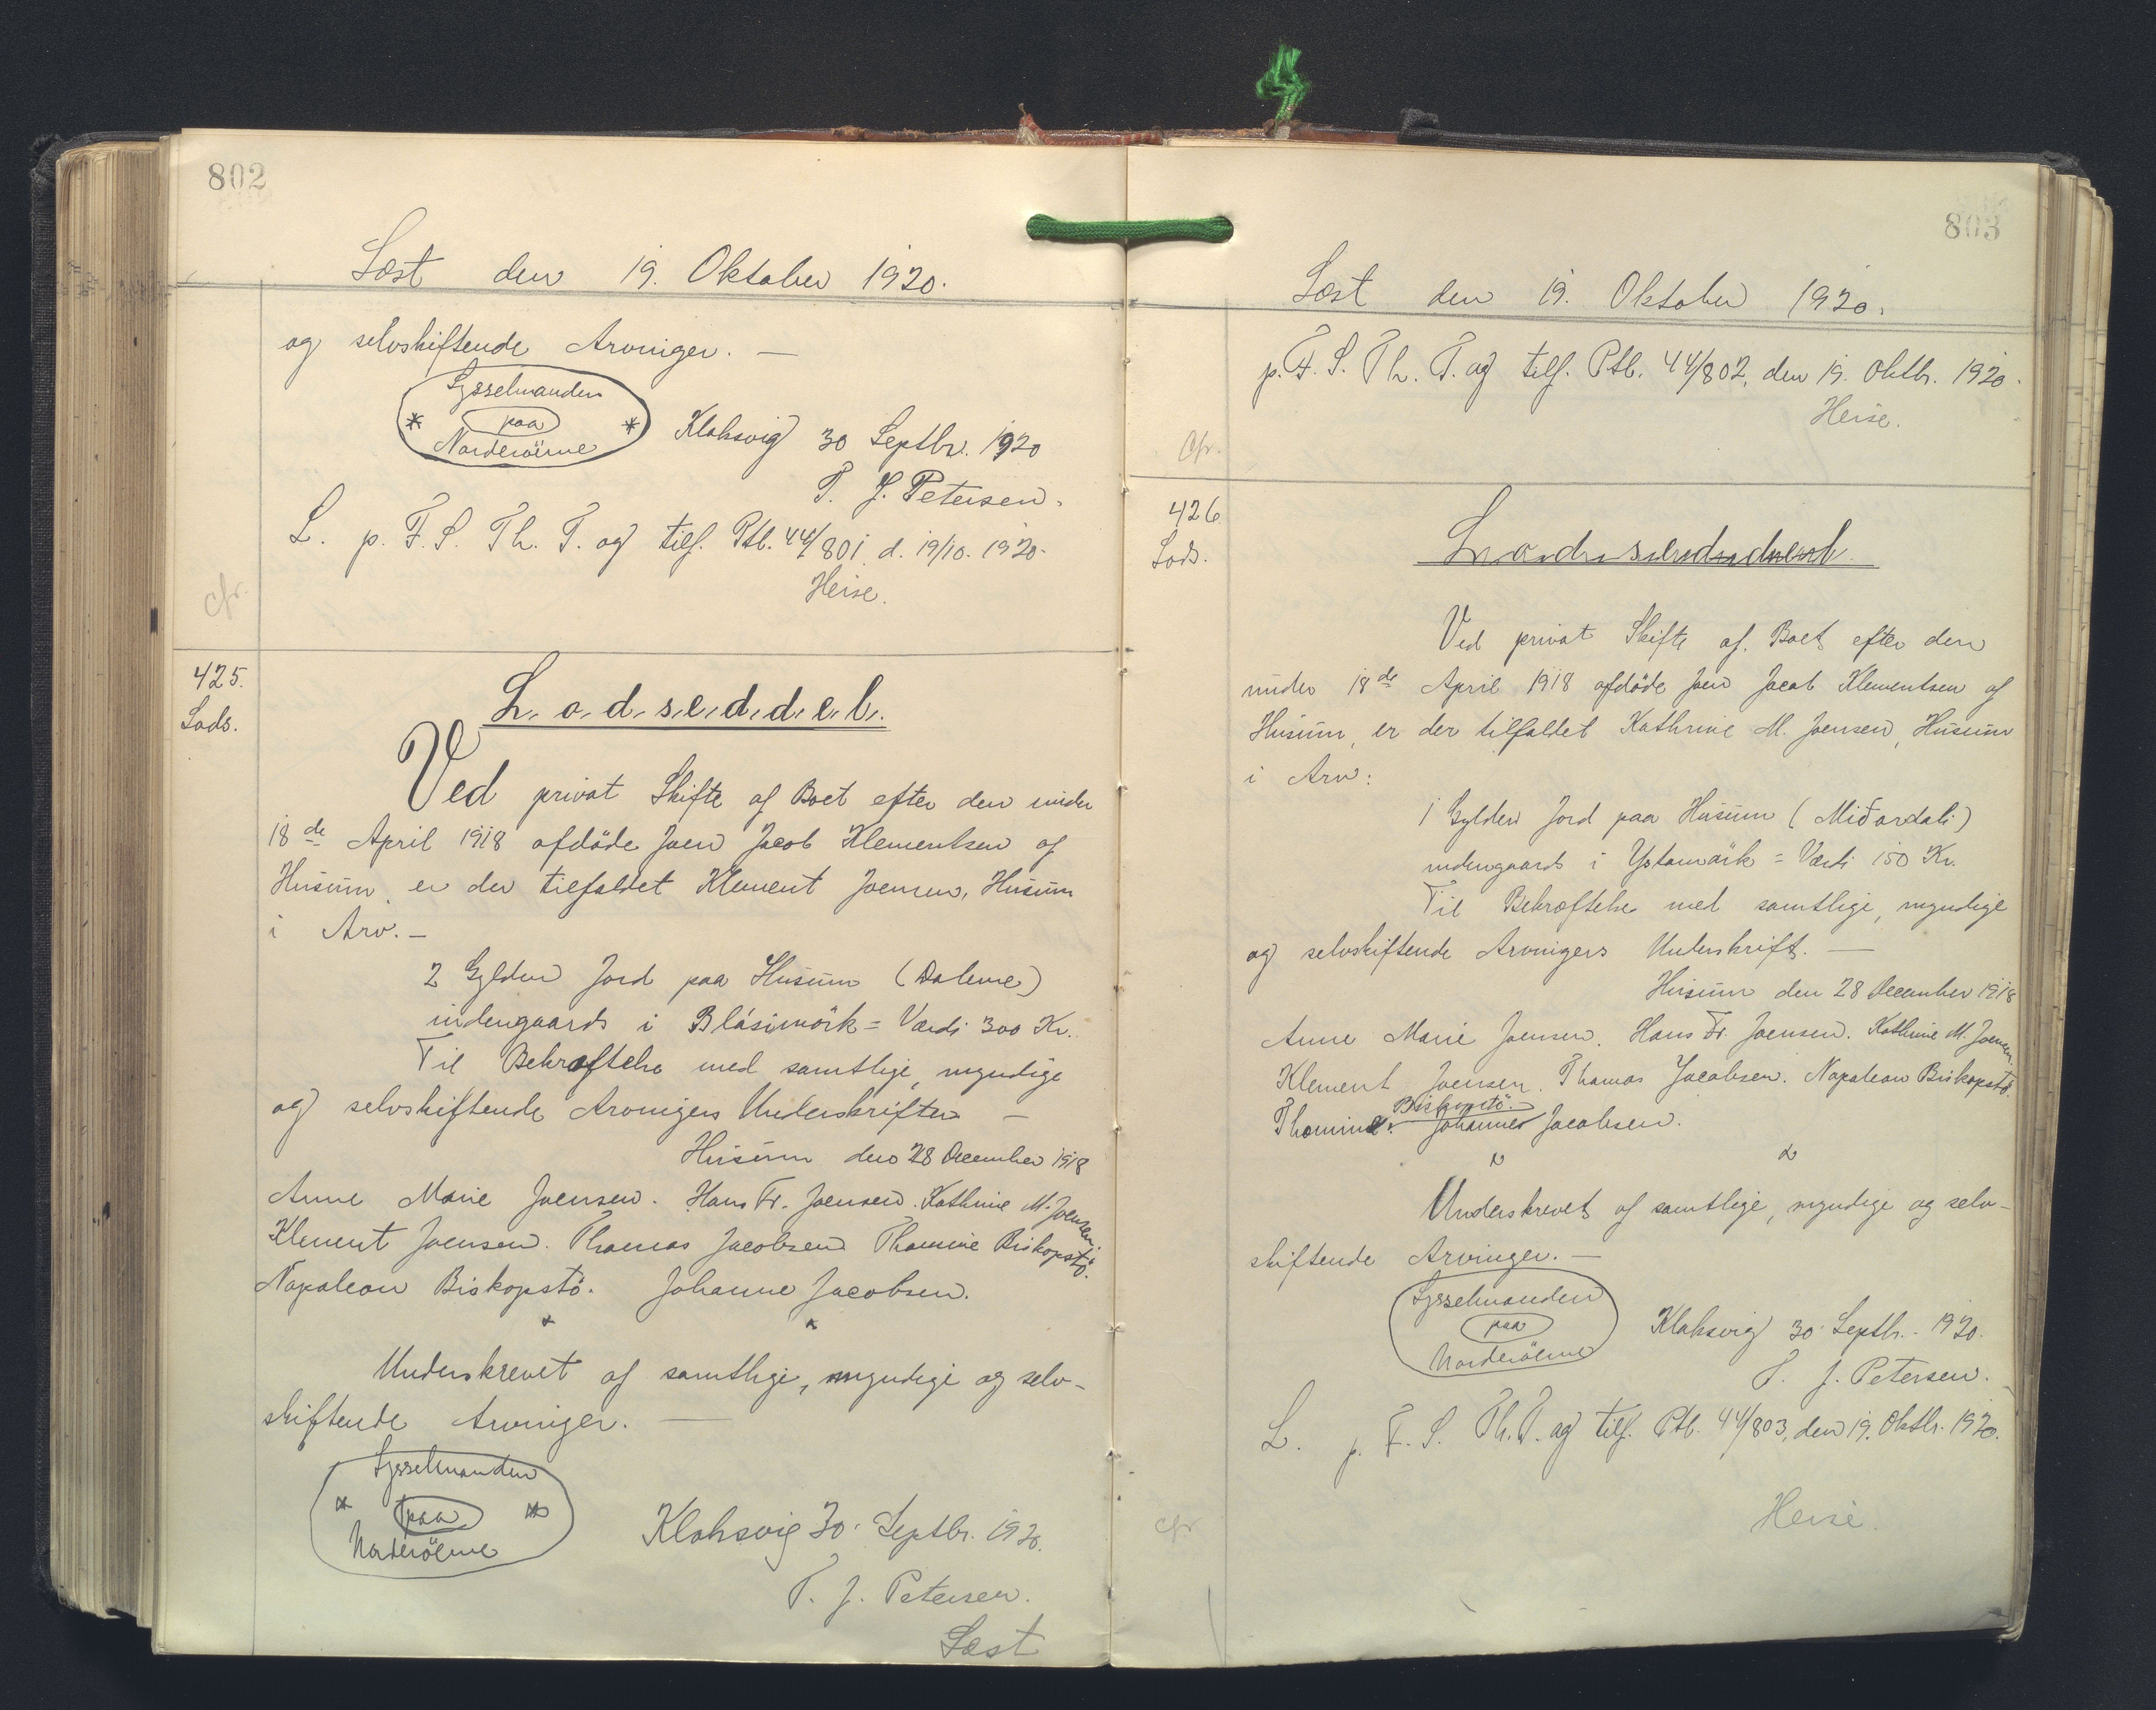 802
Læst den 19. Oktober 1920.
og selvskiftende Arvinger. —
Sysselmanden
* paa *
Norderöerne
Klaksvig 30 Septbr. 1920
T. J. Petersen.
L. p. F. S. Th. T. og tilf. Ptb. 44/801 d. 19/10. 1920.
Heise.
cfr.
425.
Lods.
Lodseddel.
Ved privat Skifte af Boet efter den under
18de April 1918 afdöde Joen Jacob Klementsen af
Husum er der tilfaldet Klement Joensen, Husum
i Arv. —
2 Gylden Jord paa Husum (Dalene)
indengaards i Blásimörk = Værdi 300 Kr.
Til Bekræftelse med samtlige, myndige
og selvskiftende Arvingers Underskrifter —
Husum den 28 December 1918
Anne Marie Joensen. Hans Fr. Joensen. Kathrine M. Joensen.
Klement Joensen. Thomas Jacobsen Thomine Biskopstö.
Napoleon Biskopstö. Johanne Jacobsen.
Underskrevet af samtlige, myndige og selv-
skiftende Arvinger. —
Sysselmanden
* paa *
Norderöerne
Klaksvig 30. Septbr. 1920.
T. J. Petersen.
Læst
803
Læst den 19. Oktober 1920.
p. F. S. Th. T. og tilf. Ptb. 44/802, den 19. Oktbr. 1920.
Heise.
Cfr.
426
Lods.
Lodseddel.
Ved privat Skifte af Boet efter den
under 18de April 1918 afdöde Joen Jacob Klementsen af
Husum, er der tilfaldet Kathrine M. Joensen, Husum
i Arv:
1 Gylden Jord paa Husum (Miðardali)
indengaards i = Værdi 150 Kr.
Til Bekræftelse med samtlige, myndige
og selvskiftende Arvingers Underskrift. —
Husum den 28 December 1918
Anne Marie Joensen. Hans Fr. Joensen. Kathrine M. Joensen
Klement Joensen. Thomas Jacobsen. Napoleon Biskopstö.
Biskopstö.
Thomine. Johanne Jacobsen.
Underskrevet af samtlige, myndige og selv-
skiftende Arvinger. —
Sysselmanden
paa
Norderöerne
Klaksvig 30. Septbr. 1920.
T. J. Petersen.
L. p. F. S. Th. T. og tilf. Ptb. 44/803, den 19. Oktbr. 1920.
Heise.
cfr